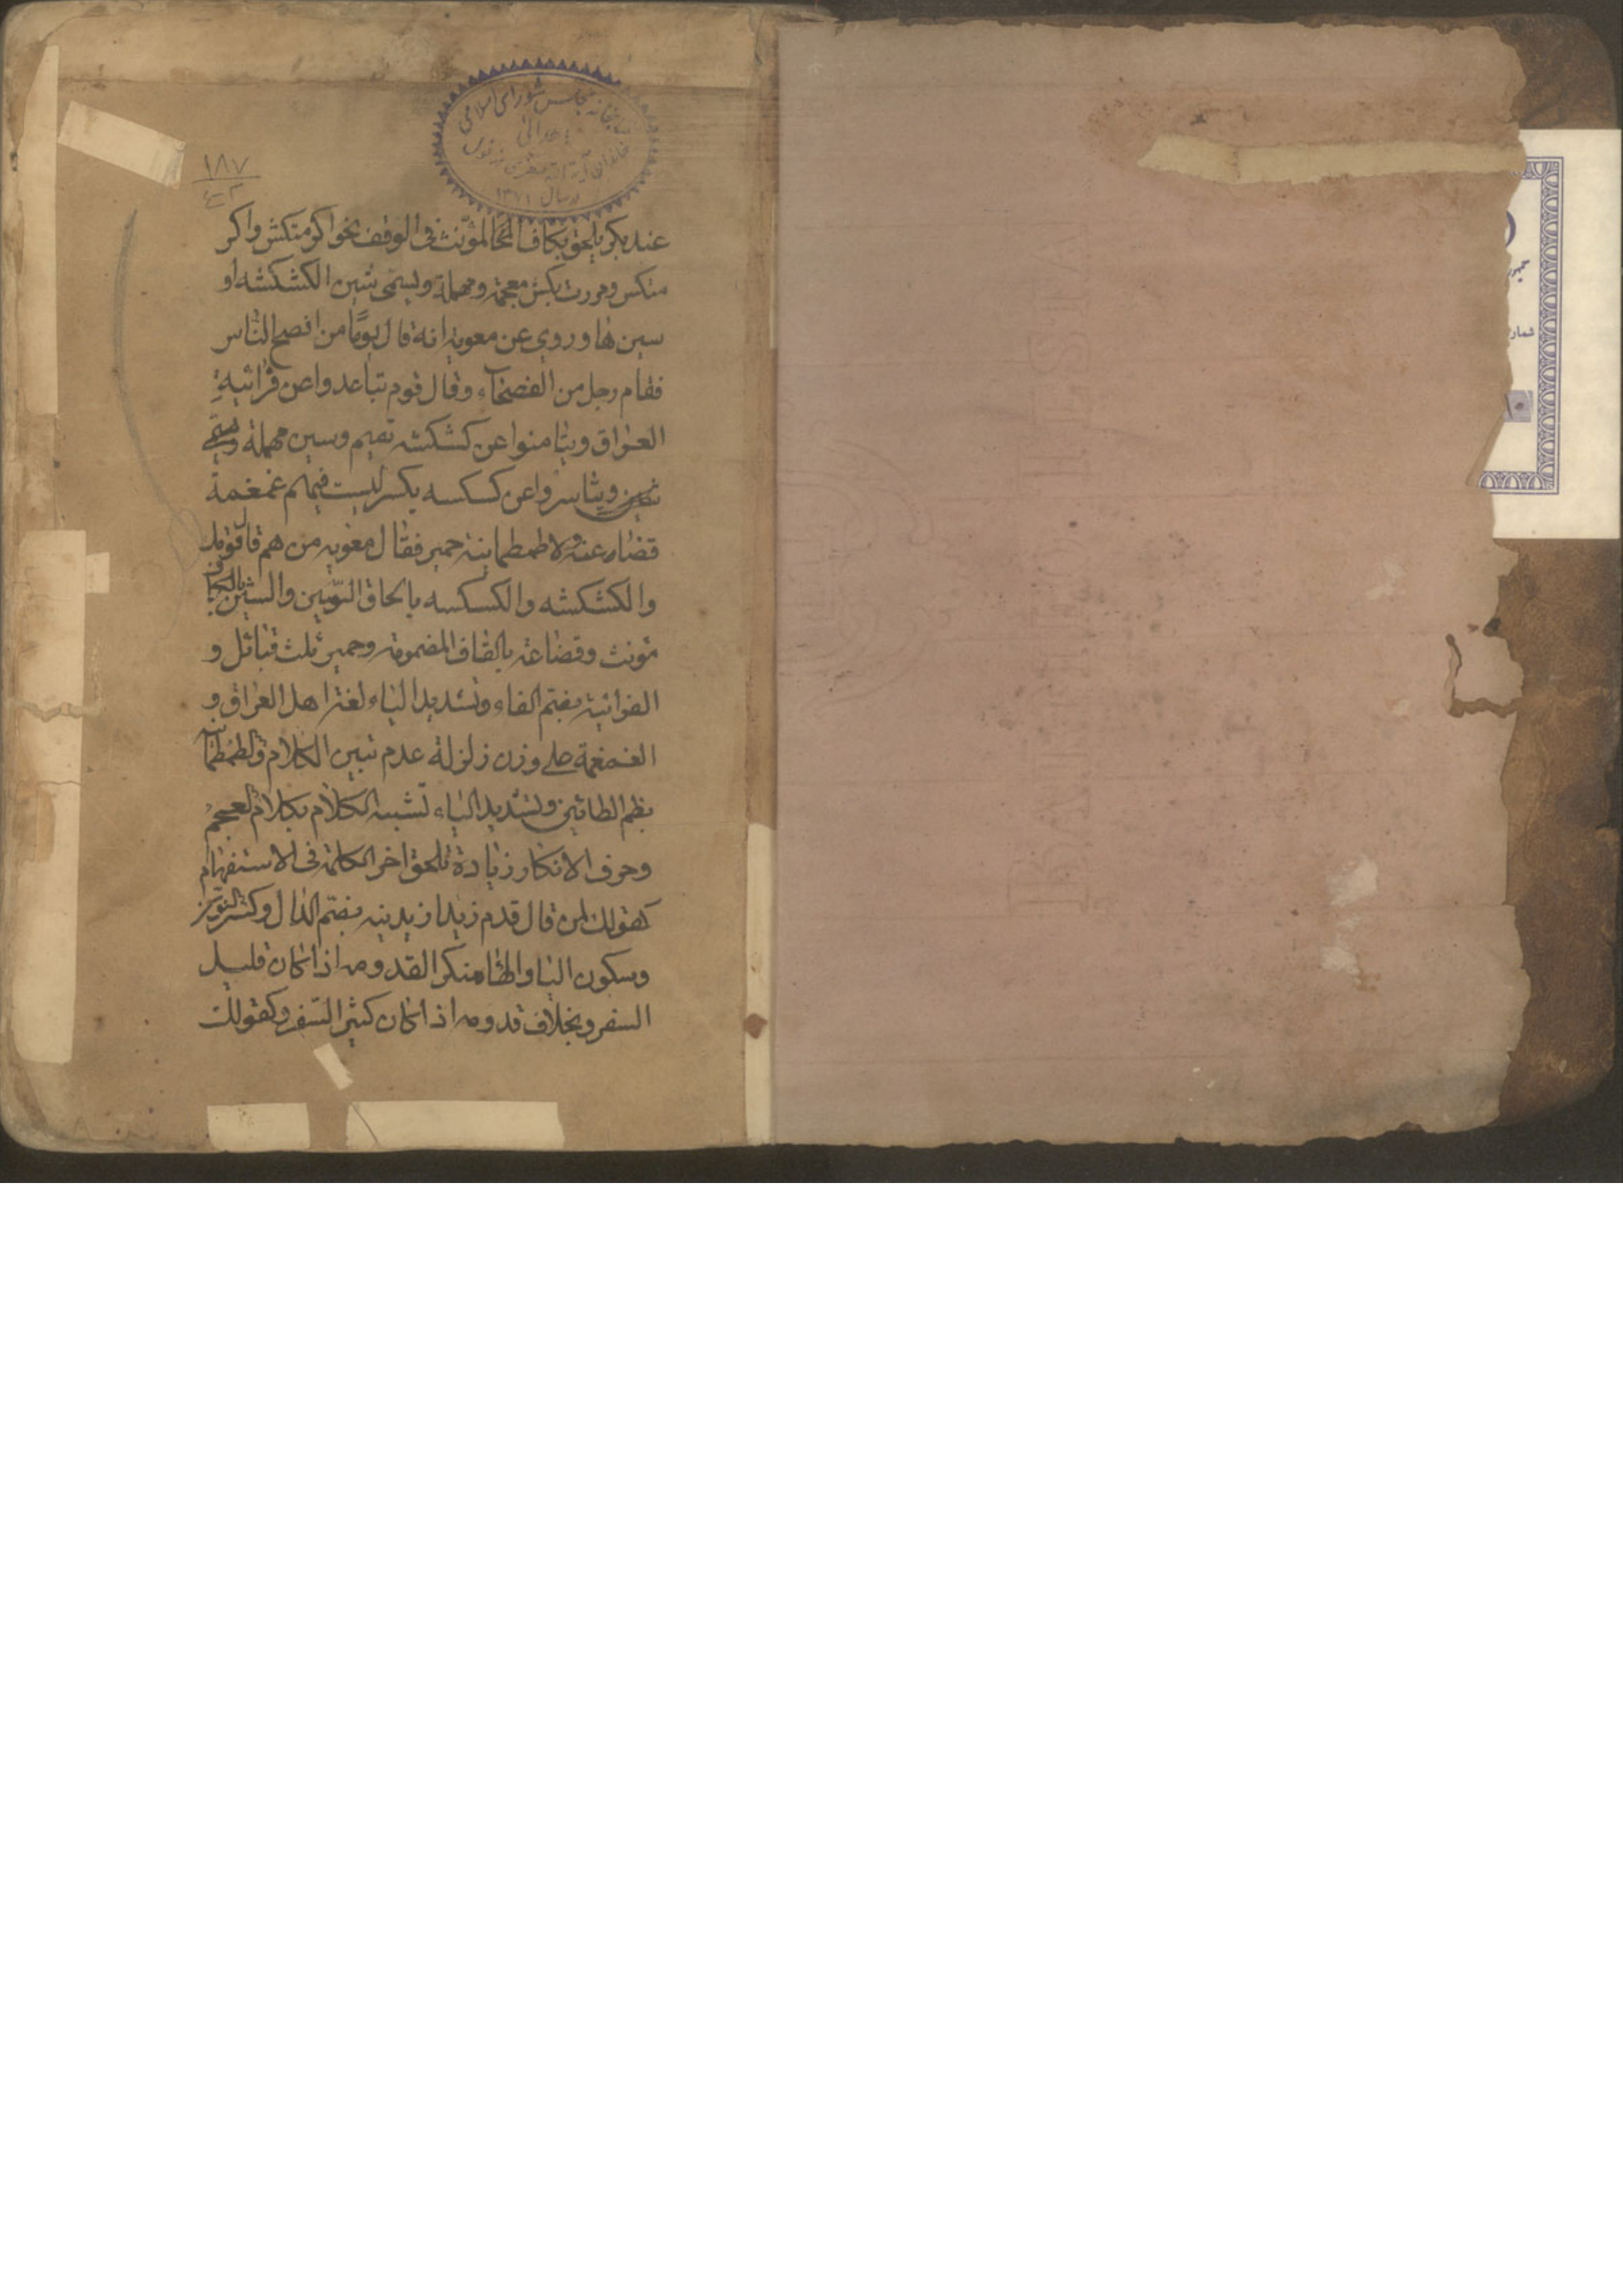 كتابخانه مجلس شورای اسلامی
اهدائی
خاندان آية الله
در سال ۱۳۷۱
۱۸۷
عند بكر يلحق بكاف المؤنث فى الوقف نحو اكرمتكش واكر
متكس ومررت بكش معجمة ومهملة ويسمى شين الكشكشه او
سين ها وروى عن معوية انه قال يومًا من افصح الناس
فقام رجل من الفصحاء وقال قوم تباعدوا عن فراتية
العراق ويتامنوا عن كشكشه تميم وسين مهملة
ويتاسروا عن كسكسه بكر ليست فيهم غمغمة
قضاعة ولا طمطمانية حمير فقال معويه من هم قال قومك
والكشكشه والكسكسه بالحاق السين والشين بالكاف
مونث وقضاعة بالقاف المضمومة وحمير ثلث قبائل و
الفراتية بضم الفاء وتشديد الياء لغة اهل العراق و
الغمغمة على وزن زلزلة عدم تبين الكلام والطمطمانية
بضم الطائين وتشديد الياء تشبيه الكلام بكلام العجم
وحرف الانكار زيادة تلحق اخر الكلمة فى الاستفهام
كقولك لمن قال قدم زيد ازيدنيه بضم الدال وكسر النون
وسكون اليا والها منكر القدومه اذا كان قليل
السفر وبخلاف قدومه اذا كان كثير السفر وكقولك